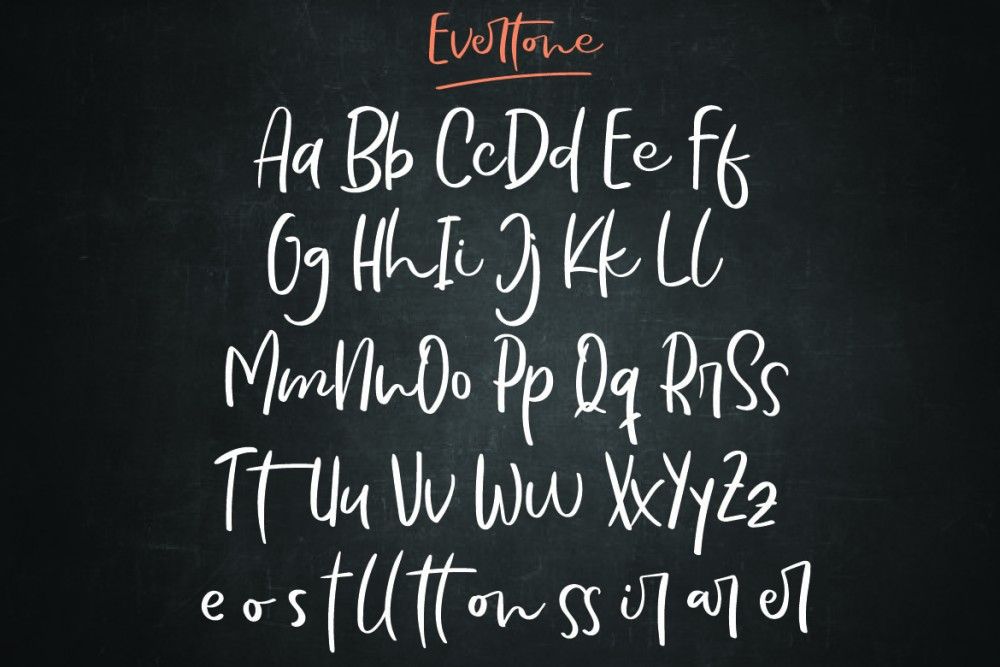 Evertone
Aa Bb Cc Dd Ee Ff
Gg Hh Ii Jj Kk Ll
Mm Nn Oo Pp Qq Rr Ss
Tt Uu Vv Ww Xx Yy Zz
e o s t ll tt on ss ir ar er